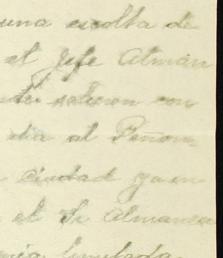 una escolta de
el Jefe Alman
salieron con
dia al Peñon
ciudad ya en
el Sr Almanza